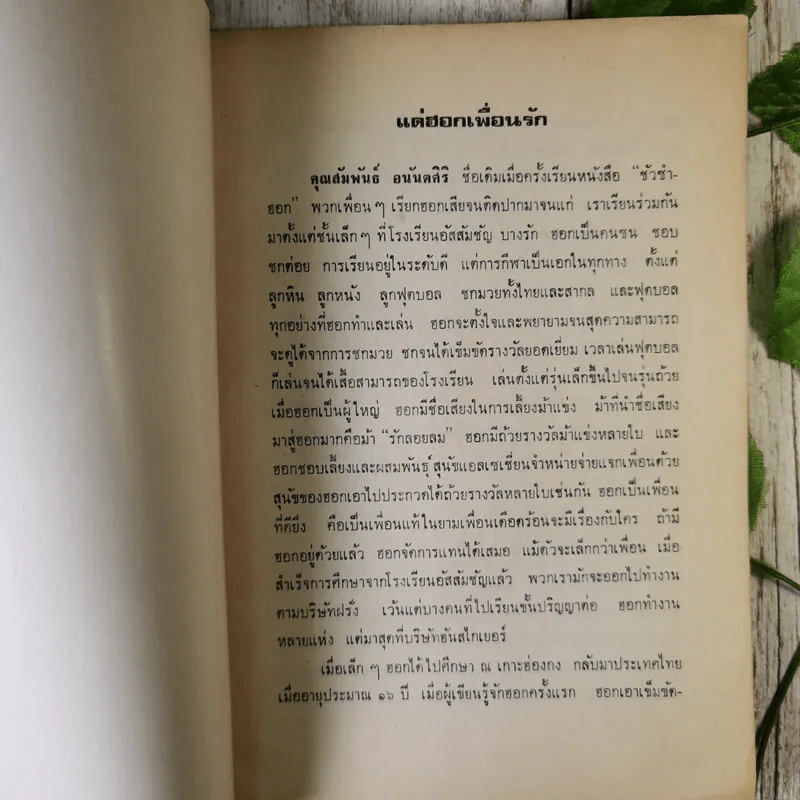 แด่ฮอกเพื่อนรัก
คุณสัมพันธ์ อนันตศิริ ชื่อเดิมเมื่อครั้งเรียนหนังสือ “ชัวชำ-
ฮอก” พวกเพื่อนๆ เรียกฮอกเสียจนติดปากมาจนแก่ เราเรียนร่วมกัน
มาตั้งแต่ชั้นเล็กๆ ที่โรงเรียนอัสสัมชัญ บางรัก ฮอกเป็นคนซน ชอบ
ชกต่อย การเรียนอยู่ในระดับดี แต่การกีฬาเป็นเอกในทุกทาง ตั้งแต่
ลูกหิน ลูกหนัง ลูกฟุตบอล ชกมวยทั้งไทยและสากล และฟุตบอล
ทุกอย่างที่ฮอกทำและเล่น ฮอกจะตั้งใจและพยายามจนสุดความสามารถ
จะดูได้จากการชกมวย ชกจนได้เข็มขัดรางวัลยอดเยี่ยม เวลาเล่นฟุตบอล
ก็เล่นจนได้เสื้อสามารถของโรงเรียน เล่นตั้งแต่รุ่นเล็กขึ้นไปจนรุ่นถ้วย
เมื่อฮอกเป็นผู้ใหญ่ ฮอกมีชื่อเสียงในการเลี้ยงม้าแข่ง ม้าที่นำชื่อเสียง
มาสู่ฮอกมากคือม้า “รักลอยลม” ฮอกมีถ้วยรางวัลม้าแข่งหลายใบ และ
ฮอกชอบเลี้ยงและผสมพันธุ์สุนัขแอลเซเชี่ยนจำหน่ายจ่ายแจกเพื่อนด้วย
สุนัขของฮอกเอาไปประกวดได้ถ้วยรางวัลหลายใบเช่นกัน ฮอกเป็นเพื่อน
ที่ดียิ่ง คือเป็นเพื่อนแท้ในยามเพื่อนเดือดร้อนจะมีเรื่องกับใคร ถ้ามี
ฮอกอยู่ด้วยแล้ว ฮอกจัดการแทนได้เสมอ แม้ตัวจะเล็กกว่าเพื่อน เมื่อ
สำเร็จการศึกษาจากโรงเรียนอัสสัมชัญแล้ว พวกเรามักจะออกไปทำงาน
ตามบริษัทฝรั่ง เว้นแต่บางคนที่ไปเรียนขั้นปริญญาต่อ ฮอกทำงาน
หลายแห่ง แต่มาสุดที่บริษัทฮันสไกเยอร์
เมื่อเล็ก ๆ ฮอกได้ไปศึกษา ณ เกาะฮ่องกง กลับมาประเทศไทย
เมื่ออายุประมาณ ๑๖ ปี เมื่อผู้เขียนรู้จักฮอกครั้งแรก ฮอกเอาเข็มขัด-